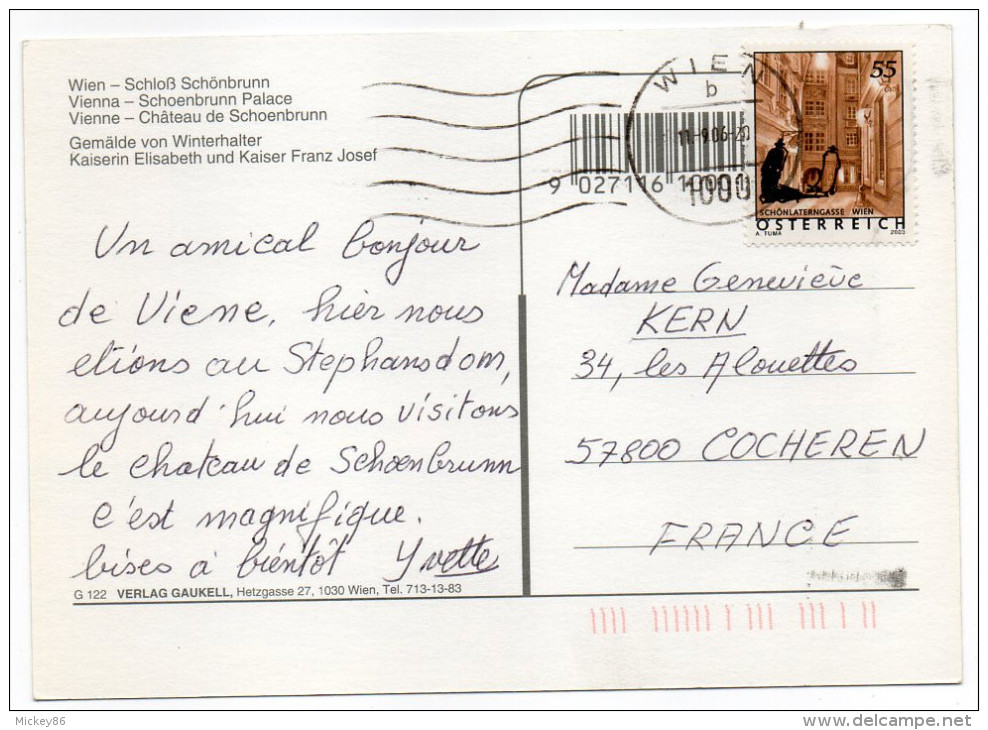 Wien – Schloß Schönbrunn
Vienna – Schoenbrunn Palace
Vienne – Château de Schoenbrunn
Gemälde von Winterhalter
Kaiserin Elisabeth und Kaiser Franz Josef
Un amical bonjour
de Viene, hier nous
etions au Stephansdom,
aujourd'hui nous visitons
le chateau de Schoenbrunn
c'est magnifique.
bises à bientôt Yvette
G 122 VERLAG GAUKELL, Hetzgasse 27, 1030 Wien, Tel. 713-13-83
9 027116 100011
WIEN
b
11.-9.06-20
1000
55
SCHÖNLATERNGASSE WIEN
ÖSTERREICH
A. TUMA 2003
Madame Geneviève
KERN
34, les Alouettes
57800 COCHEREN
FRANCE
Mickey86
www.delcampe.net